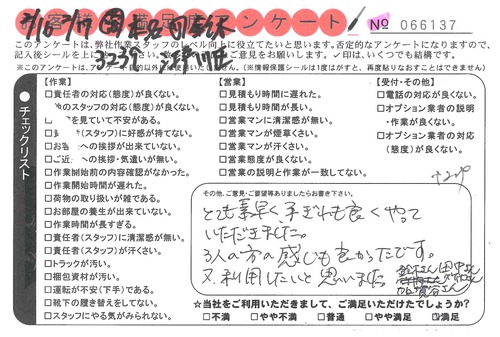 アンケート No 066137
このアンケートは、弊社作業スタッフのレベル向上に役立てたいと思います。否定的なアンケートになりますので、
※このアンケートは、作業目的以外には使用いたしません。(※情報保護シールは1度がすと、再度貼りなおすことはできません)
チェックリスト
【作業】
□責任者の対応(態度)が良くない。
のスタッフの対応(態度)が良くない。
を見ていて不安がある。
(スタッフ)に好感が持てない。
□お への挨拶が出来ていない。
□ご近 への挨拶・気遣いが無い。
□作業開始前の内容確認がなかった。
□作業開始時間が遅れた。
□荷物の取り扱いが雑である。
□お部屋の養生が出来ていない。
□作業時間が長すぎる。
□責任者(スタッフ)に清潔感が無い。
□責任者(スタッフ)が汗くさい。
□トラックが汚い。
□梱包資材が汚い。
□運転が不安(下手)である。
□靴下の履き替えをしてない。
□スタッフにやる気がみられない。
【営業】
□見積もりに遅れた。
□見積もり時間が長い。
□営業マンに清潔感が無い。
□営業マンが煙草くさい。
□営業マンが汗くさい。
□営業態度が良くない。
□営業の説明と作業が一致してない。
【受付・その他】
□電話の対応が良くない。
□オプション業者の説明
・作業が良くない。
□オプション業者の対応
(態度)が良くない。
その他、ご意見・ご要望等ありましたらお書き下さい。
とても素早く手ぎわも良くやって
いただきました。
3人の方の感じも良かったです。
又、利用したいと思いました
☆当社をご利用いただきまして、ご満足いただけたでしょうか?
□不満 □やや不満 □普通 □やや満足 ☑満足